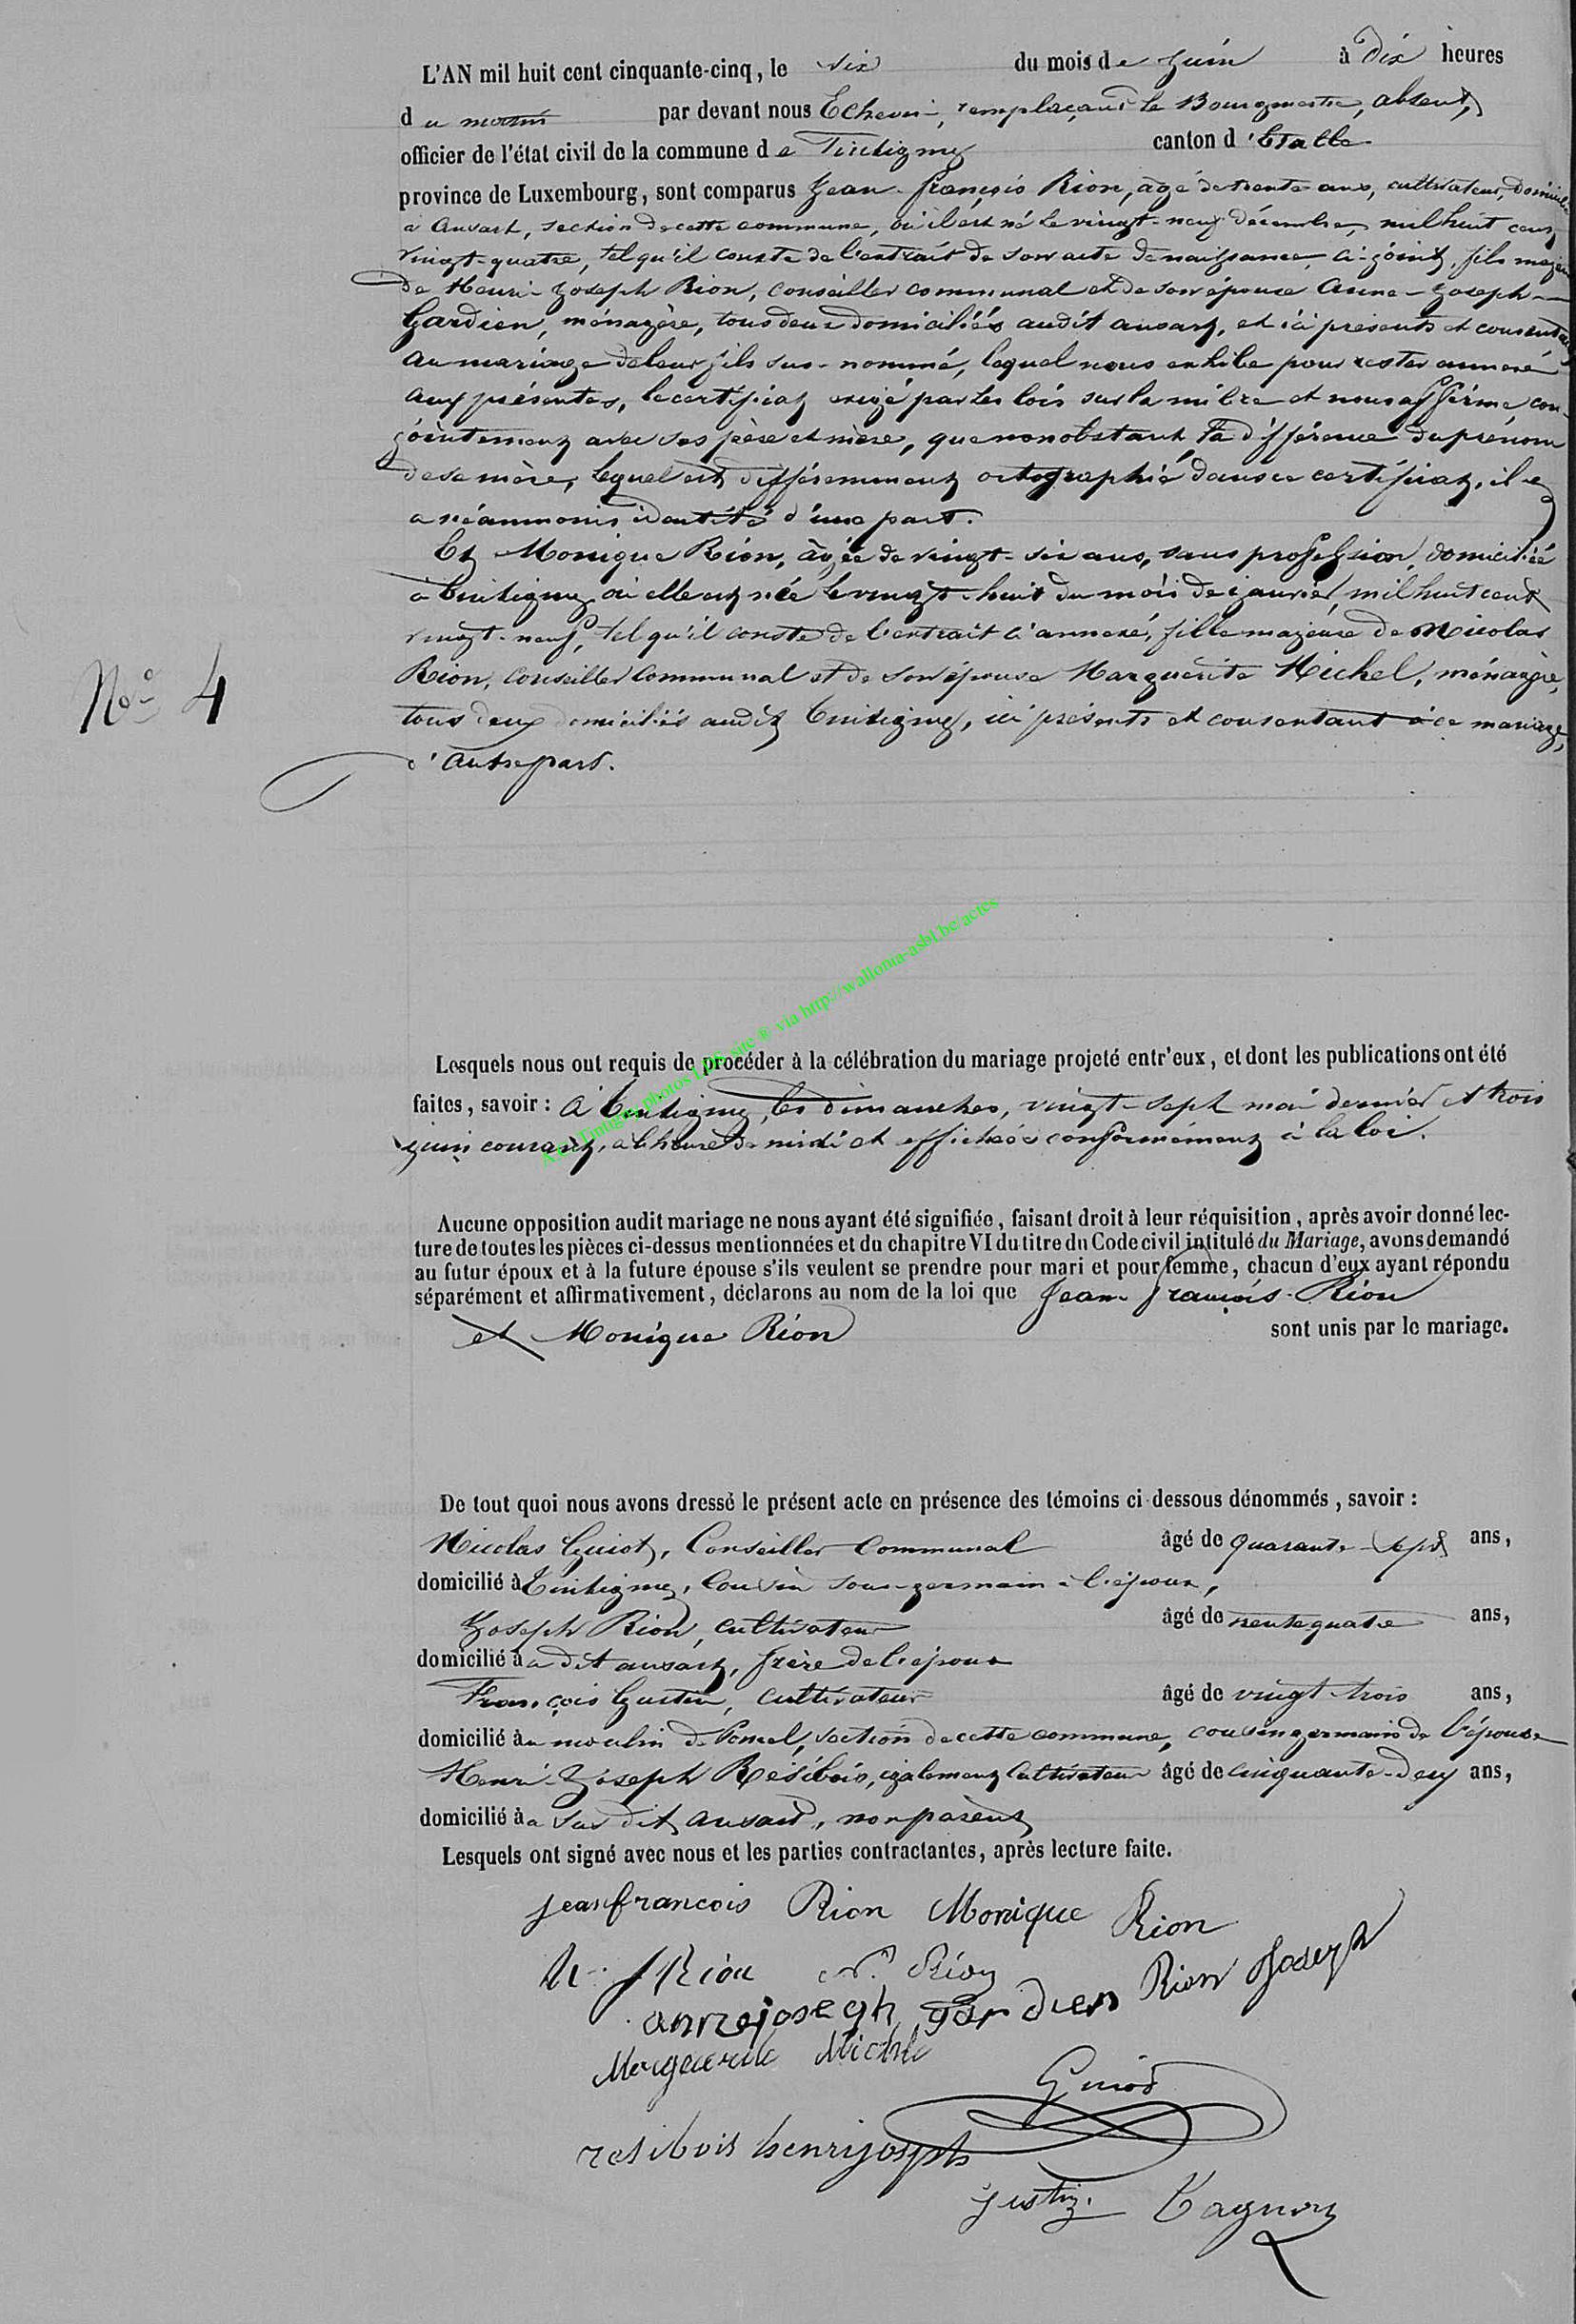 L'AN mil huit cent cinquante-cinq, le six du mois de Juin à dix heures
du matin par devant nous Echevin, remplaçant le Bourgmestre, absent,
officier de l'état civil de la commune de Tintigny canton d'Etalle
province de Luxembourg, sont comparus Jean-françois Rion, âgé de trente ans, cultivateur, domicilié
à Ansart, section de cette commune, où il est né le vingt-neuf décembre, mil huit cent
vingt-quatre, tel qu'il conste de l'extrait de son acte de naissance ci-joint, fils majeur
de Henri-Joseph Rion, conseiller communal et de son épouse Anne-Joseph
Gardien, ménagère, tous deux domiciliés audit ansart, et ici présents et consentant
au mariage de leur fils sus-nommé, lequel nous exhibe pour rester annexé
aux présentes, le certificat exigé par les lois sur la milice et nous affirme con-
jointement avec ses père et mère, que nonobstant la différence du prénom
de sa mère, lequel est différemment ortographié dans ce certificat, il y
a néanmoins identité d'une part.
Et Monique Rion, âgée de vingt-six ans, sans profession, domiciliée
à Tintigny où elle est née le vingt-huit du mois de janvier, mil huit cent
vingt-neuf, tel qu'il conste de l'extrait ci annexé, fille majeure de Nicolas
Rion, conseiller communal et de son épouse Marguerite Michel, ménagère,
No 4
tous deux domiciliés audit Tintigny, ici présents et consentant à ce mariage,
d'autre part.
Lesquels nous ont requis de procéder à la célébration du mariage projeté entr'eux, et dont les publications ont été
faites, savoir : à Tintigny, les dimanches, vingt-sept mai dernier et trois
juin courant, à l'heure de midi et affichées conformément à la loi.
A.E. Tintigny photos LDS site ® via http://wallonia-asbl.be/actes
Aucune opposition audit mariage ne nous ayant été signifiée, faisant droit à leur réquisition, après avoir donné lec-
ture de toutes les pièces ci-dessus mentionnées et du chapitre VI du titre du Code civil intitulé du Mariage, avons demandé
au futur époux et à la future épouse s'ils veulent se prendre pour mari et pour femme, chacun d'eux ayant répondu
séparément et affirmativement, déclarons au nom de la loi que Jean-françois-Rion
et Monique Rion sont unis par le mariage.
De tout quoi nous avons dressé le présent acte en présence des témoins ci-dessous dénommés, savoir :
Nicolas Guiot, Conseiller Communal âgé de quarante-sept ans,
domicilié à Tintigny, Cousin sous-germain à l'époux,
Joseph Rion, cultivateur âgé de trente quatre ans,
domicilié à a dit ansart, frère de l'époux
François Justin, cultivateur âgé de vingt trois ans,
domicilié au moulin de Poncel, section de cette commune, cousin germain de l'épouse
Henri-Joseph Resibois, également Cultivateur âgé de cinquante-deux ans,
domicilié à a sus dit ansart, non parent
Lesquels ont signé avec nous et les parties contractantes, après lecture faite.
jeanfrancois Rion Monique Rion
H. J Rion N. Rion
annejosegh gardien Rion Joseph
Marguerite Michel
Guiot
resibois henrijosph
Justin. Tagnon